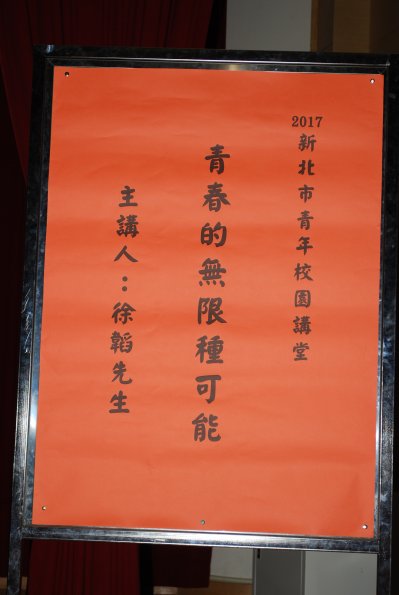 2017新北市青年校園講堂
青春的無限種可能
主講人：徐韜先生